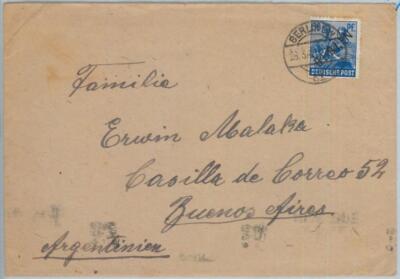 BERLIN
DEUTSCHE POST
Familie
Erwin Malaka
Casilla de Correo 52
Buenos Aires
Argentinien